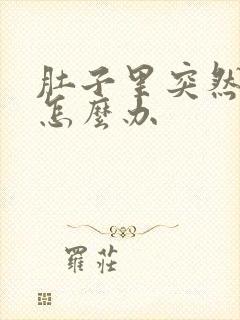 肚子里突然
怎麼办
羅莊